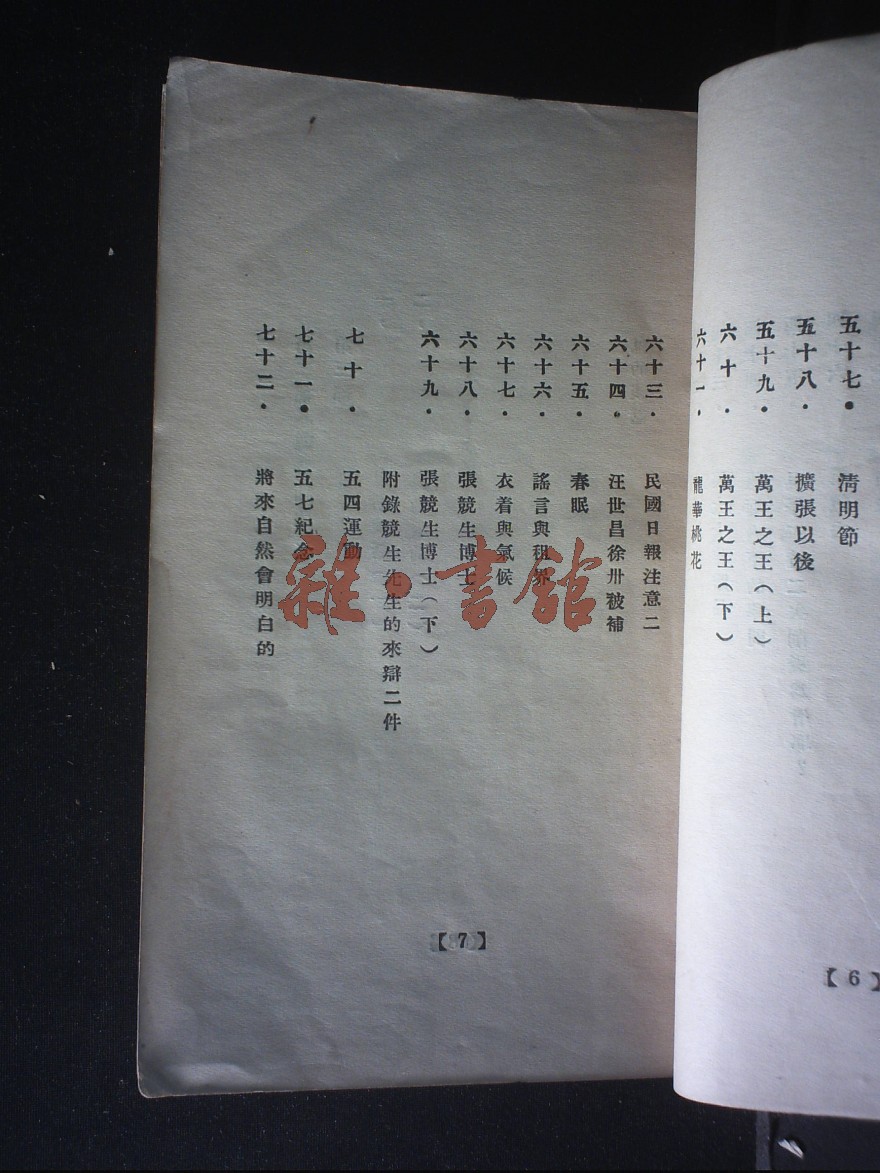 五十七・　清明節
五十八・　擴張以後
五十九・　萬王之王（上）
六十・　萬王之王（下）
六十一・　龍華桃花
【6】
六十三・　民國日報注意二
六十四・　汪世昌徐卅被補
六十五・　春眠
六十六・　謠言與租界
六十七・　衣着與氣候
六十八・　張競生博士
六十九・　張競生博士（下）
附錄競生先生的來辯二件
七十・　五四運動
七十一・　五七紀念
七十二・　將來自然會明白的
【7】
雜・書館